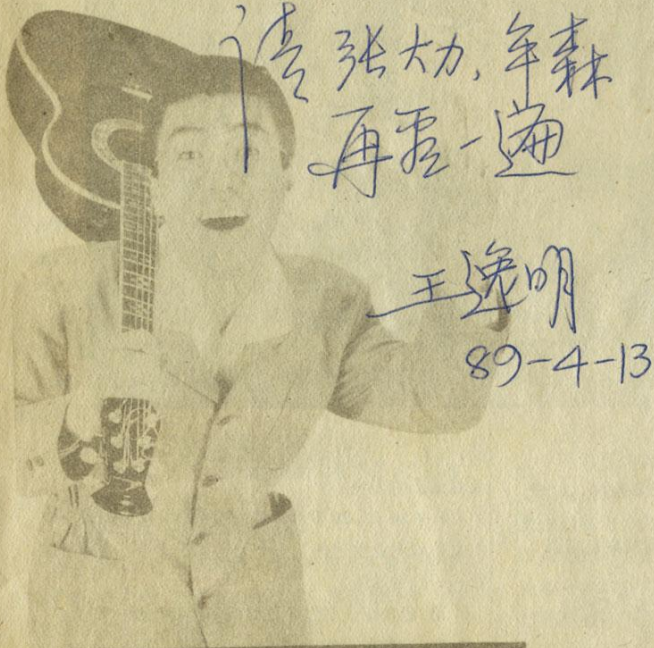 请张大力、牟森
再看一遍
王逸明
89-4-13